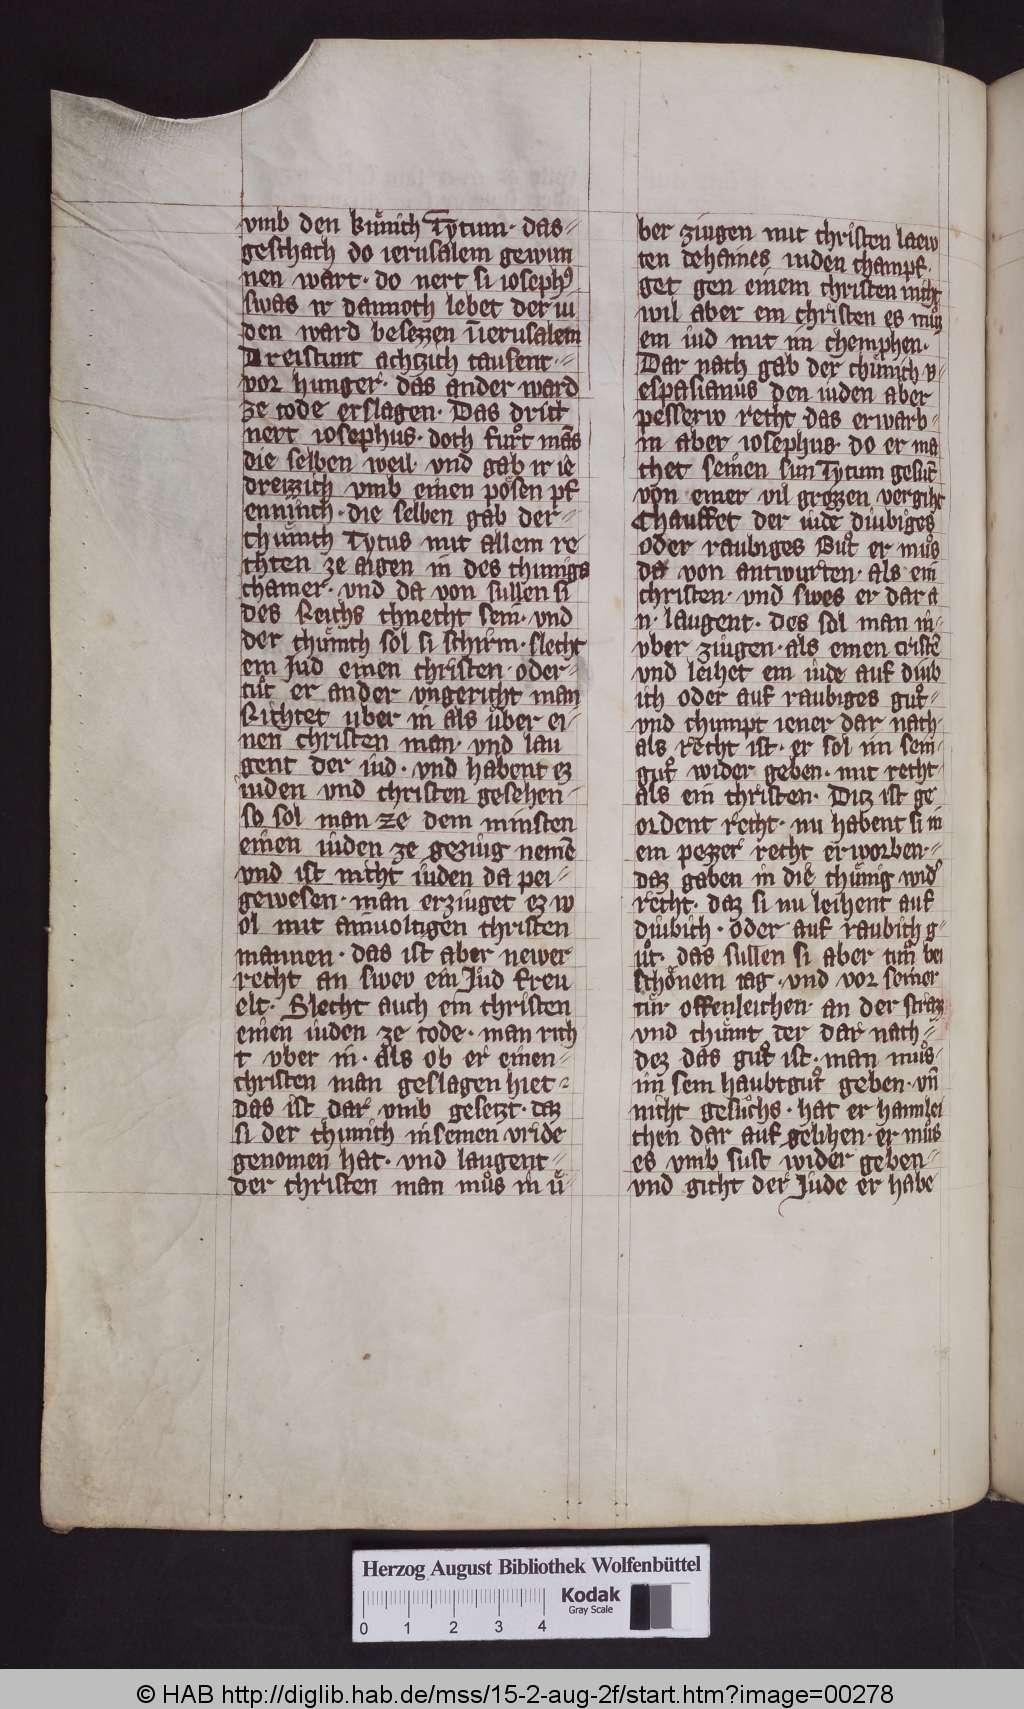 vmb den kuͤnich Tytum · das=
geschach do ierusalem gewun
nen wart · do nert si ioseph9
swas ir dannoch lebet der iu
den ward besezzen ū ierusalem
Dreistunt achtzich tausent · =
vor hunger · das ander ward
ze tode erslagen · Das dritt
nert iosephus · doch fuͦrt mās
die selben veil vnd gab ir ie
dreizzich vmb einen poͤsen pf
enninch · die selben gab der=
chuͤnich Tytus mit allem re
chten ze aigen in des chunigs
chamer · vnd da von sullen si
des Reichs chnecht sein · vnd
der chuͤnich sol si schirm · slecht
ein Jud einen christen · oder=
tuͦt er ander vngericht man
Richtet uber in als uͤber ei-
nen christen man · vnd lau
gent der iud · vnd habent ez
iuden vnd christen gesehen-
so sol man ze dem minsten
einen iuden ze gezivg nemē
vnd ist nicht iuden da pei-
gewesen · man erzivget ez w
ol mit ainvoltigen christen
mannen · das ist aber newer
recht an swev ein Jud freu
elt · Slecht auch ein christen
einen iuden ze tode · man rich
t vber in · als ob er einen=
christen man geslagen hiet=
das ist dar vmb gesetzt · daz
si der chunich in seinen vride
genomen hat · vnd laugent=
der christen man muͦs in uͤ-
ber zivgen mit christen laew
ten dehaines iuden champf ·
get gen einem christen nicht
wil aber ein christen es muͦz
ein iud mit im chemphen ·
Dar nach gab der chuͤnich v=
espasianus den iuden aber
pesserw recht · das erwarb-
in aber iosephus · do er ma
chet seinen sun Tytum gesūt
von einer vil grozzen vergiht
Chauffet der iude diubiges
oder raubiges guͦt er muͦs
da von antwurten · als ein
christen · vnd swes er dar a
n · laugent · des sol man in ·
vber zivgen · als einen cristē
vnd leihet ein iude auf diub
ich oder auf raubiges guͦt=
vnd chumpt iener dar nach ·
als recht ist · er sol im sein-
guͦt wider geben · mit recht ·
als ein christen · Diz ist ge
ordent recht · nu habent si in
ein pezzer recht erworben=
daz gaben in die chuͤnig wid'
recht · daz si nu leihent auf
diubich · oder auf raubich g-
uͦt · das sullen si aber tuͦn bei
schoͤnem tag · vnd vor seiner
tuͤr offenleichen · an der straz
vnd chuͤmt der dar nach=
dez das guͦt ist · man muͦs-
im sein haubtguͦt geben · vn̄
nicht gesuͦchs · hat er haimlei
chen dar auf gelihen · er muͦs
es vmb sust wider geben=
vnd gicht der Jude er habe
Herzog August Bibliothek Wolfenbüttel
0 1 2 3 4
Kodak
Gray Scale
© HAB http://diglib.hab.de/mss/15-2-aug-2f/start.htm?image=00278